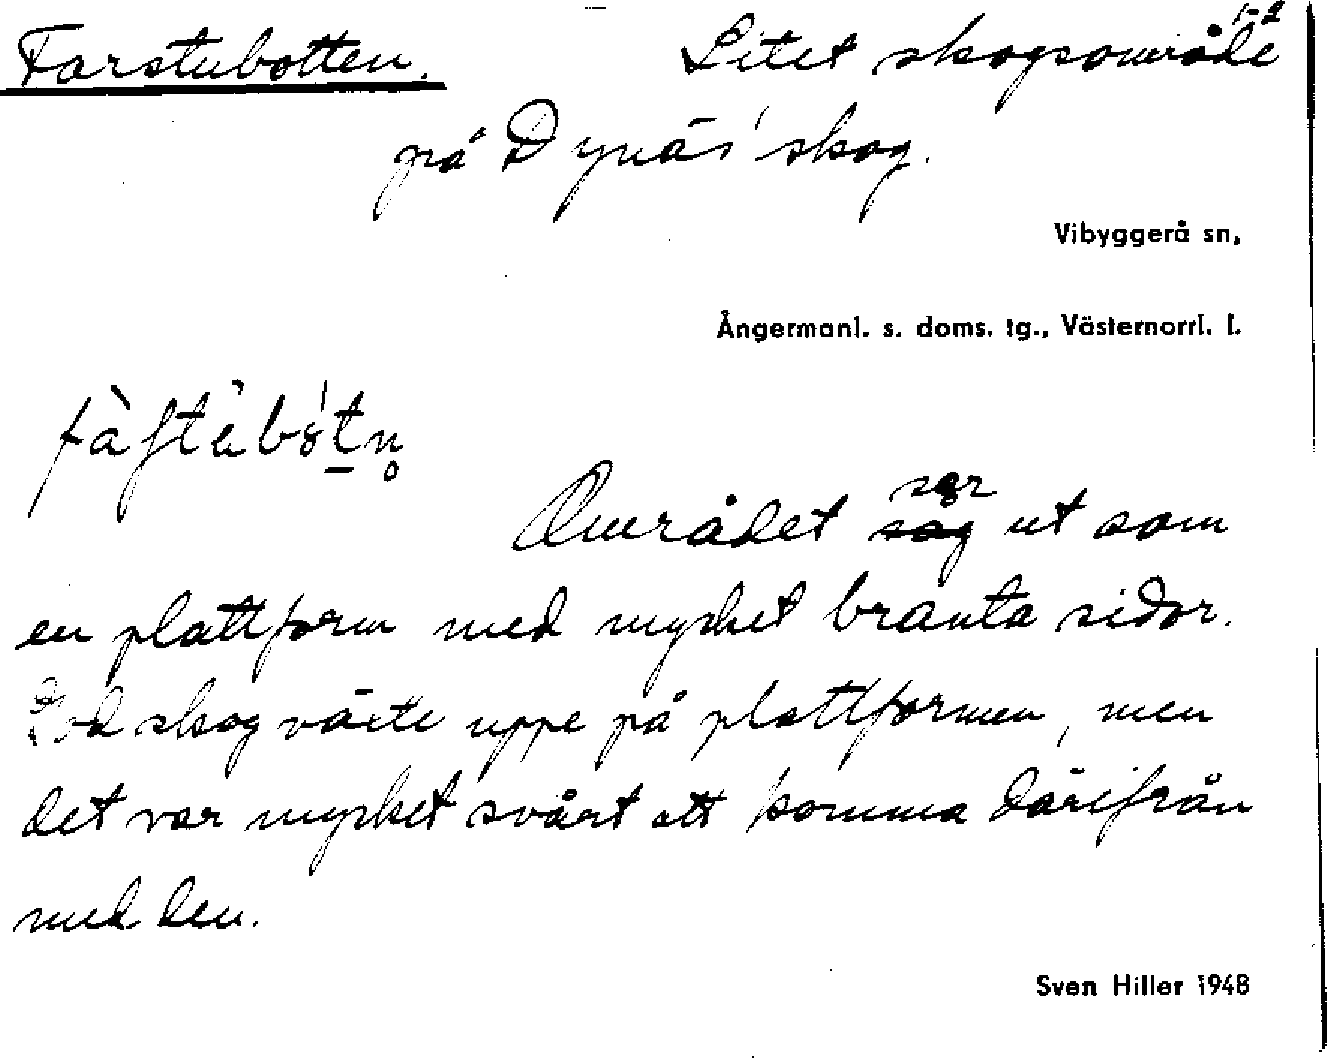 Farstubotten. Litet skogsområde 1-2
på Dynäs' skog.
Vibyggerå sn,
Ångermanl. s. doms. tg., Västernorrl. l.
ser
Området såg ut som
en plattform med mycket branta sidor.
God skog växte uppe på plattformen, men
det var mycket svårt att komma därifrån
med den.
Sven Hiller 1948